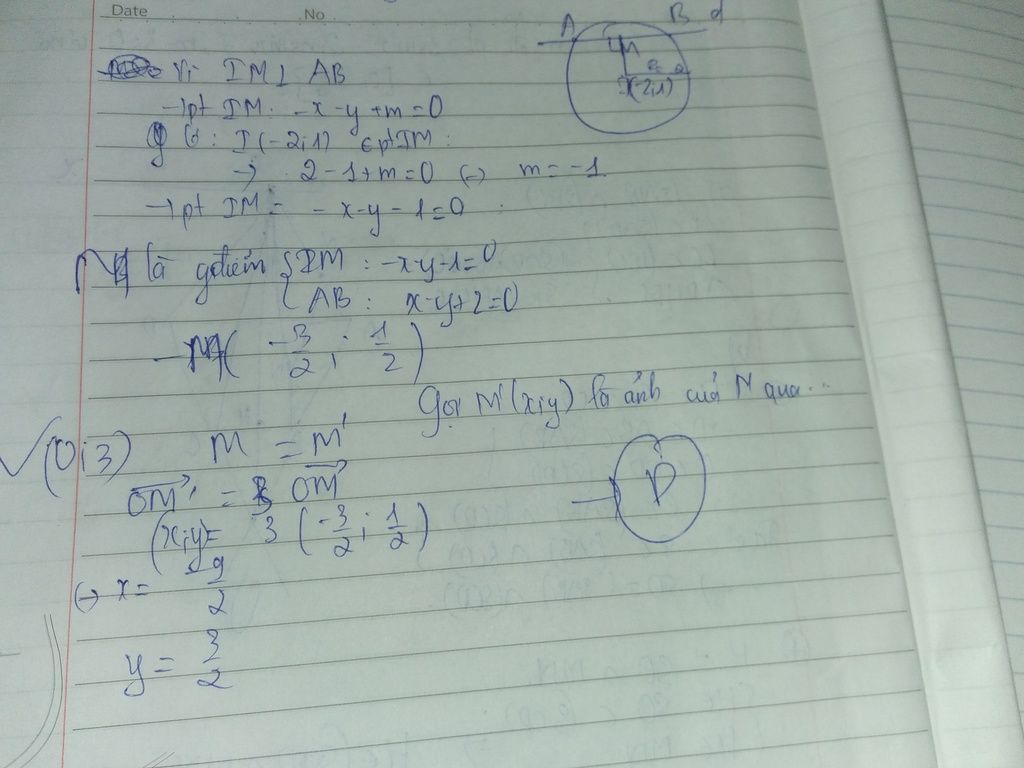 Date No
A B d
Vì IM ⊥ AB
I(-2;1)
→ pt IM: -x-y+m=0
Có: I(-2;1) ∈ pt IM:
→ 2-1+m=0 (=) m=-1
→ pt IM = -x-y-1=0
M là gđiểm { IM : -x-y-1=0
AB : x-y+2=0
→ M( -3/2 ; 1/2 )
Gọi M'(x;y) là ảnh của M qua...
V(O;3) M = M'
OM' = 3 OM
(x;y)= 3 ( -3/2 ; 1/2 )
(=) x= -9/2
y = 3/2
→ D